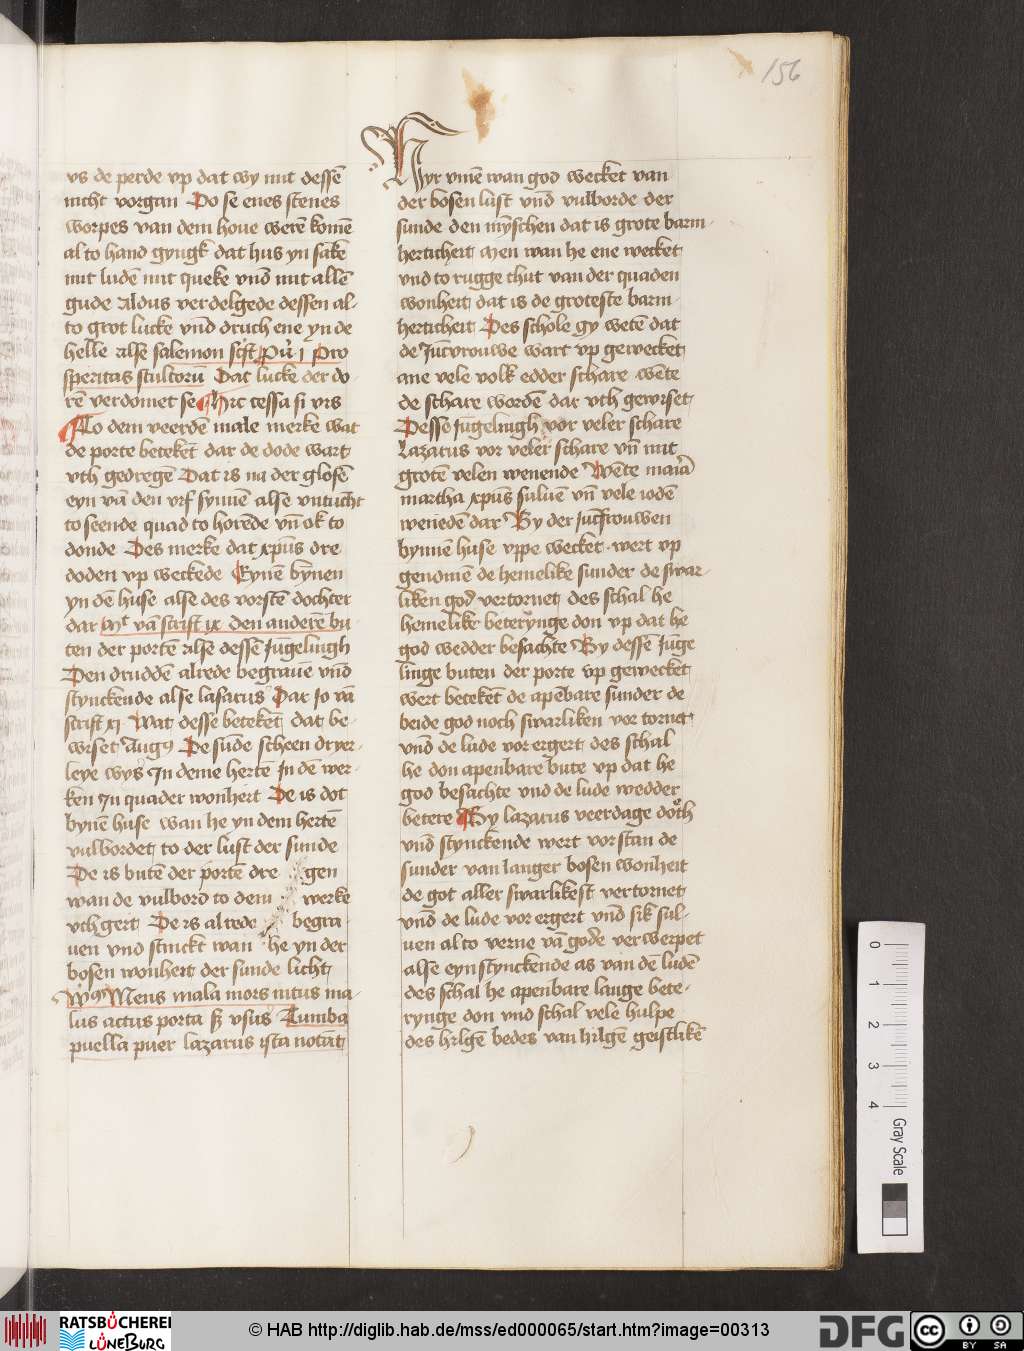 156
vs de perde vp dat wy mit dessē
nicht vorgan Do se enes stenes
worpes van dem houe werē komē
al to hand gyngk dat hus yn sakē
mit ludē mit queke vnd mit allē
gude Aldus verdelgede dessen al-
to grot lucke vnd druch ene yn de
helle alse salemon sc͛ft Pū͛ j Pro
speritas stultorū Dat lucke der do-
rē verdomet se Hic cessa si vis
To dem veerdē male merke wat
de porte beteket dar de dode wart
vth gedregē Dat is na der glosē
eyn vā den vif synnē alse vntucht
to seende quad to horēde vn̄ ok to
donde Des merke dat xpūs dre
doden vp weckede Eynē bynen
yn dē huse alse des vorstē dochter
dar Mt vā scrift ix den anderē bu
ten der portē alse dessē Jūgelingh
Den druddē alrede begrauē vnd
stynckende alse lasarus Dar Jo vā
scrift xj Wat desse beteket dat be-
wiset Augꝰ De sūde scheen dryer-
leye wys Jn deme hertē Jn dē wer-
ken Jn quader wonheit De is dot
bynē huse wan he yn dem hertē
vulbordet to der lust der sunde
De is butē der portē dre gen
wan de vulbord to dem werke
vthgert De is alrede begra
uen vnd stinckt wan he yn der
bosen wonheit der sunde licht
Mens mala mors intus ma-
lus actus porta usus Tumba
puella puer lazarus ista notāt
Hyr vmē wan god wecket van
der bosen lust vnd vulborde der
sunde den mȳschen dat is grote barm-
herticheit Men wan he ene wecket
vnd to rugge thut van der quaden
wonheit dat is de groteste barm-
herticheit Des schole gy wetē dat
de Jūcvrouwe wart vp gewecket
ane vele volk edder schare wēte
de schare wordē dar vth gewiset
Desse jūgelingh vor veler schare
Lazarus vor veler schare vn̄ mit
grotē velen wenende Wēte maīa
martha xpūs suluē vn̄ vele iodē
weneden dar By der jūcfrouwen
bynnē huse vppe wecket wert vp
genomē de hemelike sunder de swar-
liken god vertornet des schal he
hemelike beterynge don vp dat he
god wedder besachte By dessē Jūge
linge buten der porte vp gewecket
wert beteket de apēbare sunder de
beide god noch swarliken vor tornet
vnd de lude vor ergert des schal
he don apenbare bute vp dat he
god besachte vnd de lude wedder
betere By lazarus veerdage doth
vnd stynckende wert vorstan de
sunder van langer bosen wonheit
de got aller swarlikest vertornet
vnd de lude vor ergert vnd sik sul-
uen al to verne vā gode verwerpet
alse eyn stynckende as van dē ludē
des schal he apenbare lange bete-
rynge don vnd schal vele hulpe
des hilgē bedes van hilgē geistlikē
0
1
2
3
4
Gray Scale
RATSBÜCHEREI
LÜNEBURG
© HAB http://diglib.hab.de/mss/ed000065/start.htm?image=00313
DFG
cc
BY SA